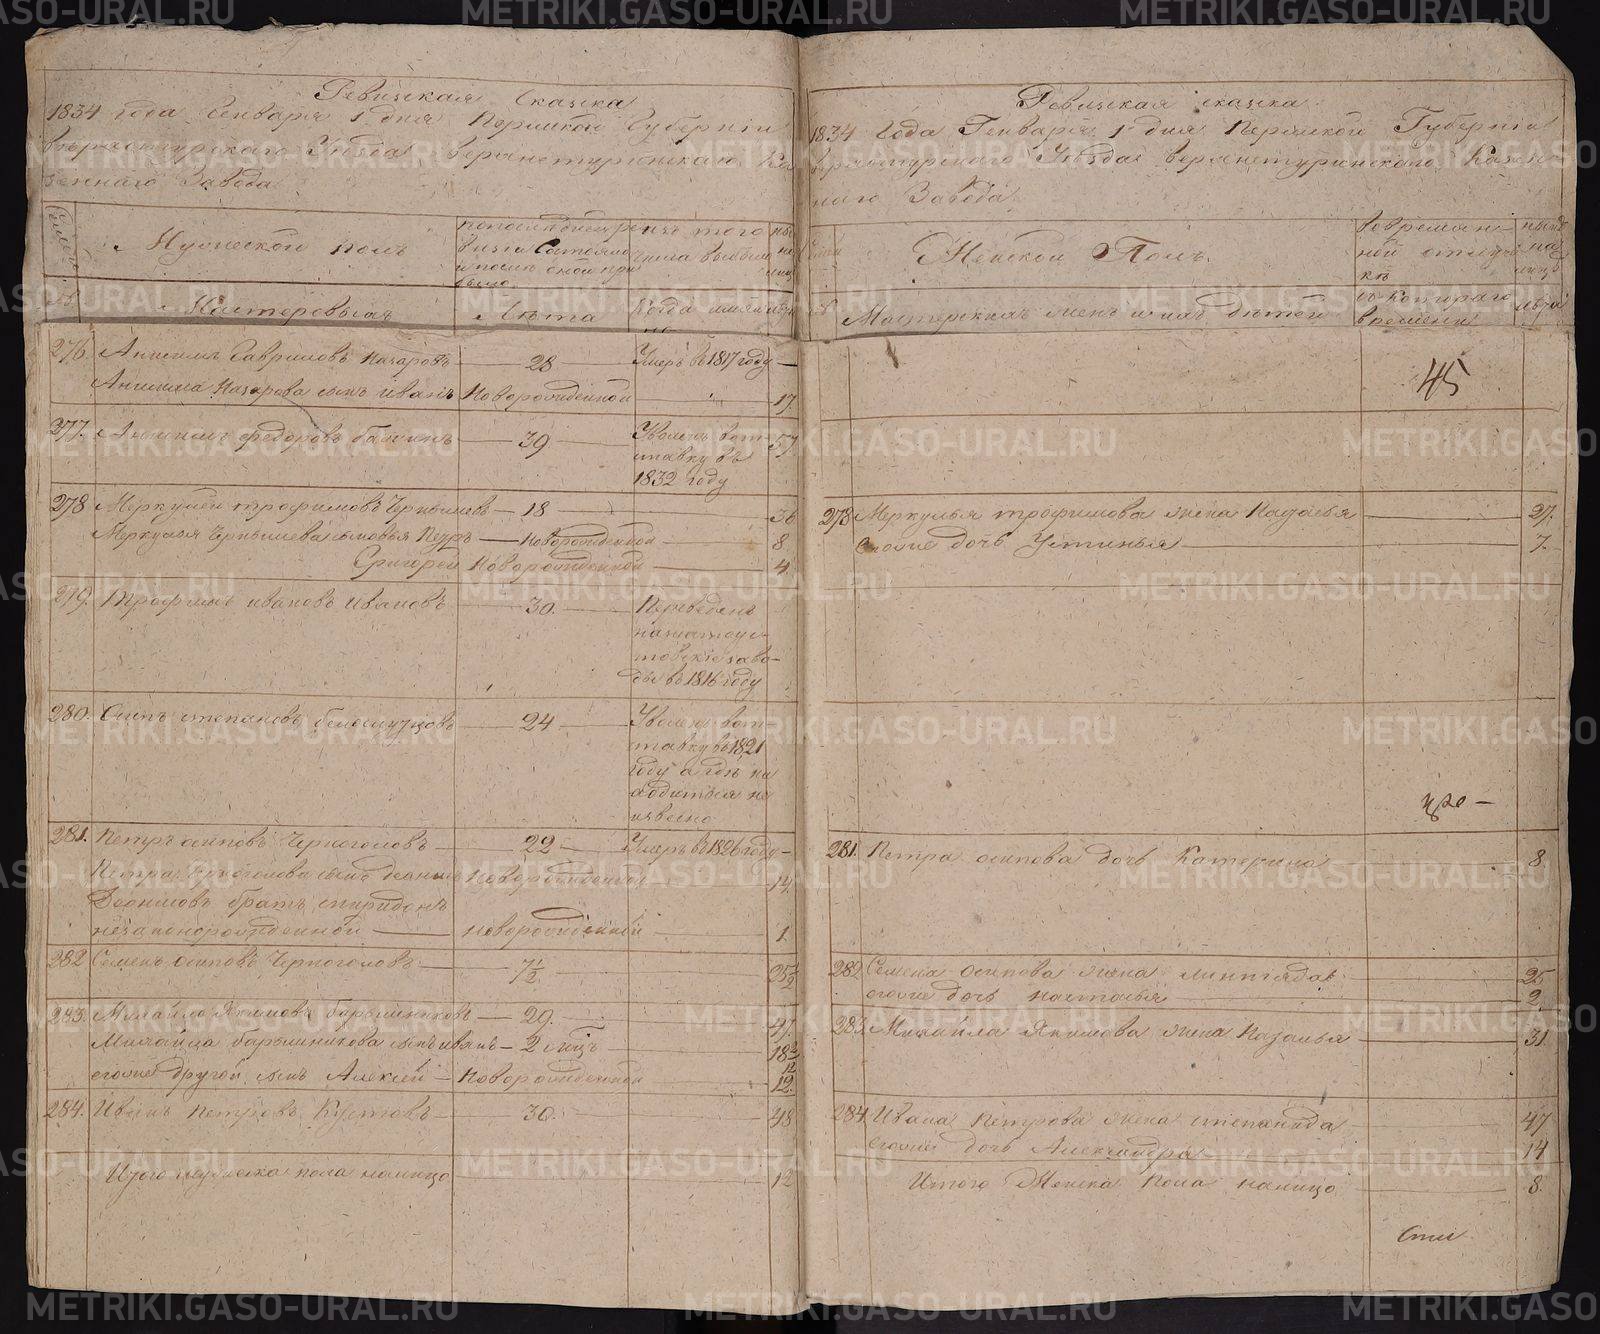 Ревизская Сказка
1834 года Генваря 1 дня Пермской Губернiи
Верхотурского Уезда верхнетуринскаго Ка
зеннаго Завода
Мужеской полъ
Мастеровыя
Лѣта
Когда имян
но
276. Анисимъ Гавриловъ Назаровъ — 28 — Умеръ в 1817 году —
Анисима Назарова сынъ Иванъ Новорожденной — 17.
277. Анисимъ федоровъ — 39 — Уволенъ вот
ставку въ 57.
1832 году
278 Меркулей трофимовъ Чернышевъ — 18 — 36
Меркулья Чернышева сыновья Петръ — новорожденной — 8.
Григорей Новорожденной — 4.
279. Трофимъ ивановъ Ивановъ — 30. — Переведенъ
назлатоус
товскiе заво
ды в 1816 году
280. степановъ — 24 — Уволенъ вот
ставку въ 1821
году а где на
ходиться не
извесно
281. Петръ осиповъ Черноголовъ — 22 — Умеръ в 1826 году —
Петра Черноголова сынъ Новорожденной — 14
братъ спиридонъ
незаконорожденной — новорожденной — 1.
282 Семенъ осиповъ Черноголовъ — 7½ — 25½
283. Михайло Якимовъ барышниковъ — 29. — 47.
Михайла барышникова сынъ иванъ — 2 мѣц — 18 2/12
егоже другой сынъ Алексей — Новорожденной — 12.
284. Иванъ Петровъ Кустовъ — 30. — 48
Итого мужеска пола налицо — 12
Ревизская сказка
1834 Года Генваря 1 дня Пермской Губернiи
Верхотурского Уезда верхнетуринскаго Казен
наго Завода
Женской Полъ.
Вовремян
ной отлуч
кѣ
Мастерскихъ женъ и ихъ дѣтей
съ котораго
времени
лѣта
45
278 Меркулья трофимова жена Наталья — 27.
Егоже дочь Устинья — 7.
281. Петра осипова дочь Катерина — 8
282. Семена осипова жена — 25
егоже дочь настасья — 2.
283. Михайла Якимова жена Наталья — 31
284. Ивана Петрова жена степанида — 47
Егоже дочь Александра — 14
Итого Женска Пола налицо — 8.
METRIKI.GASO-URAL.RU